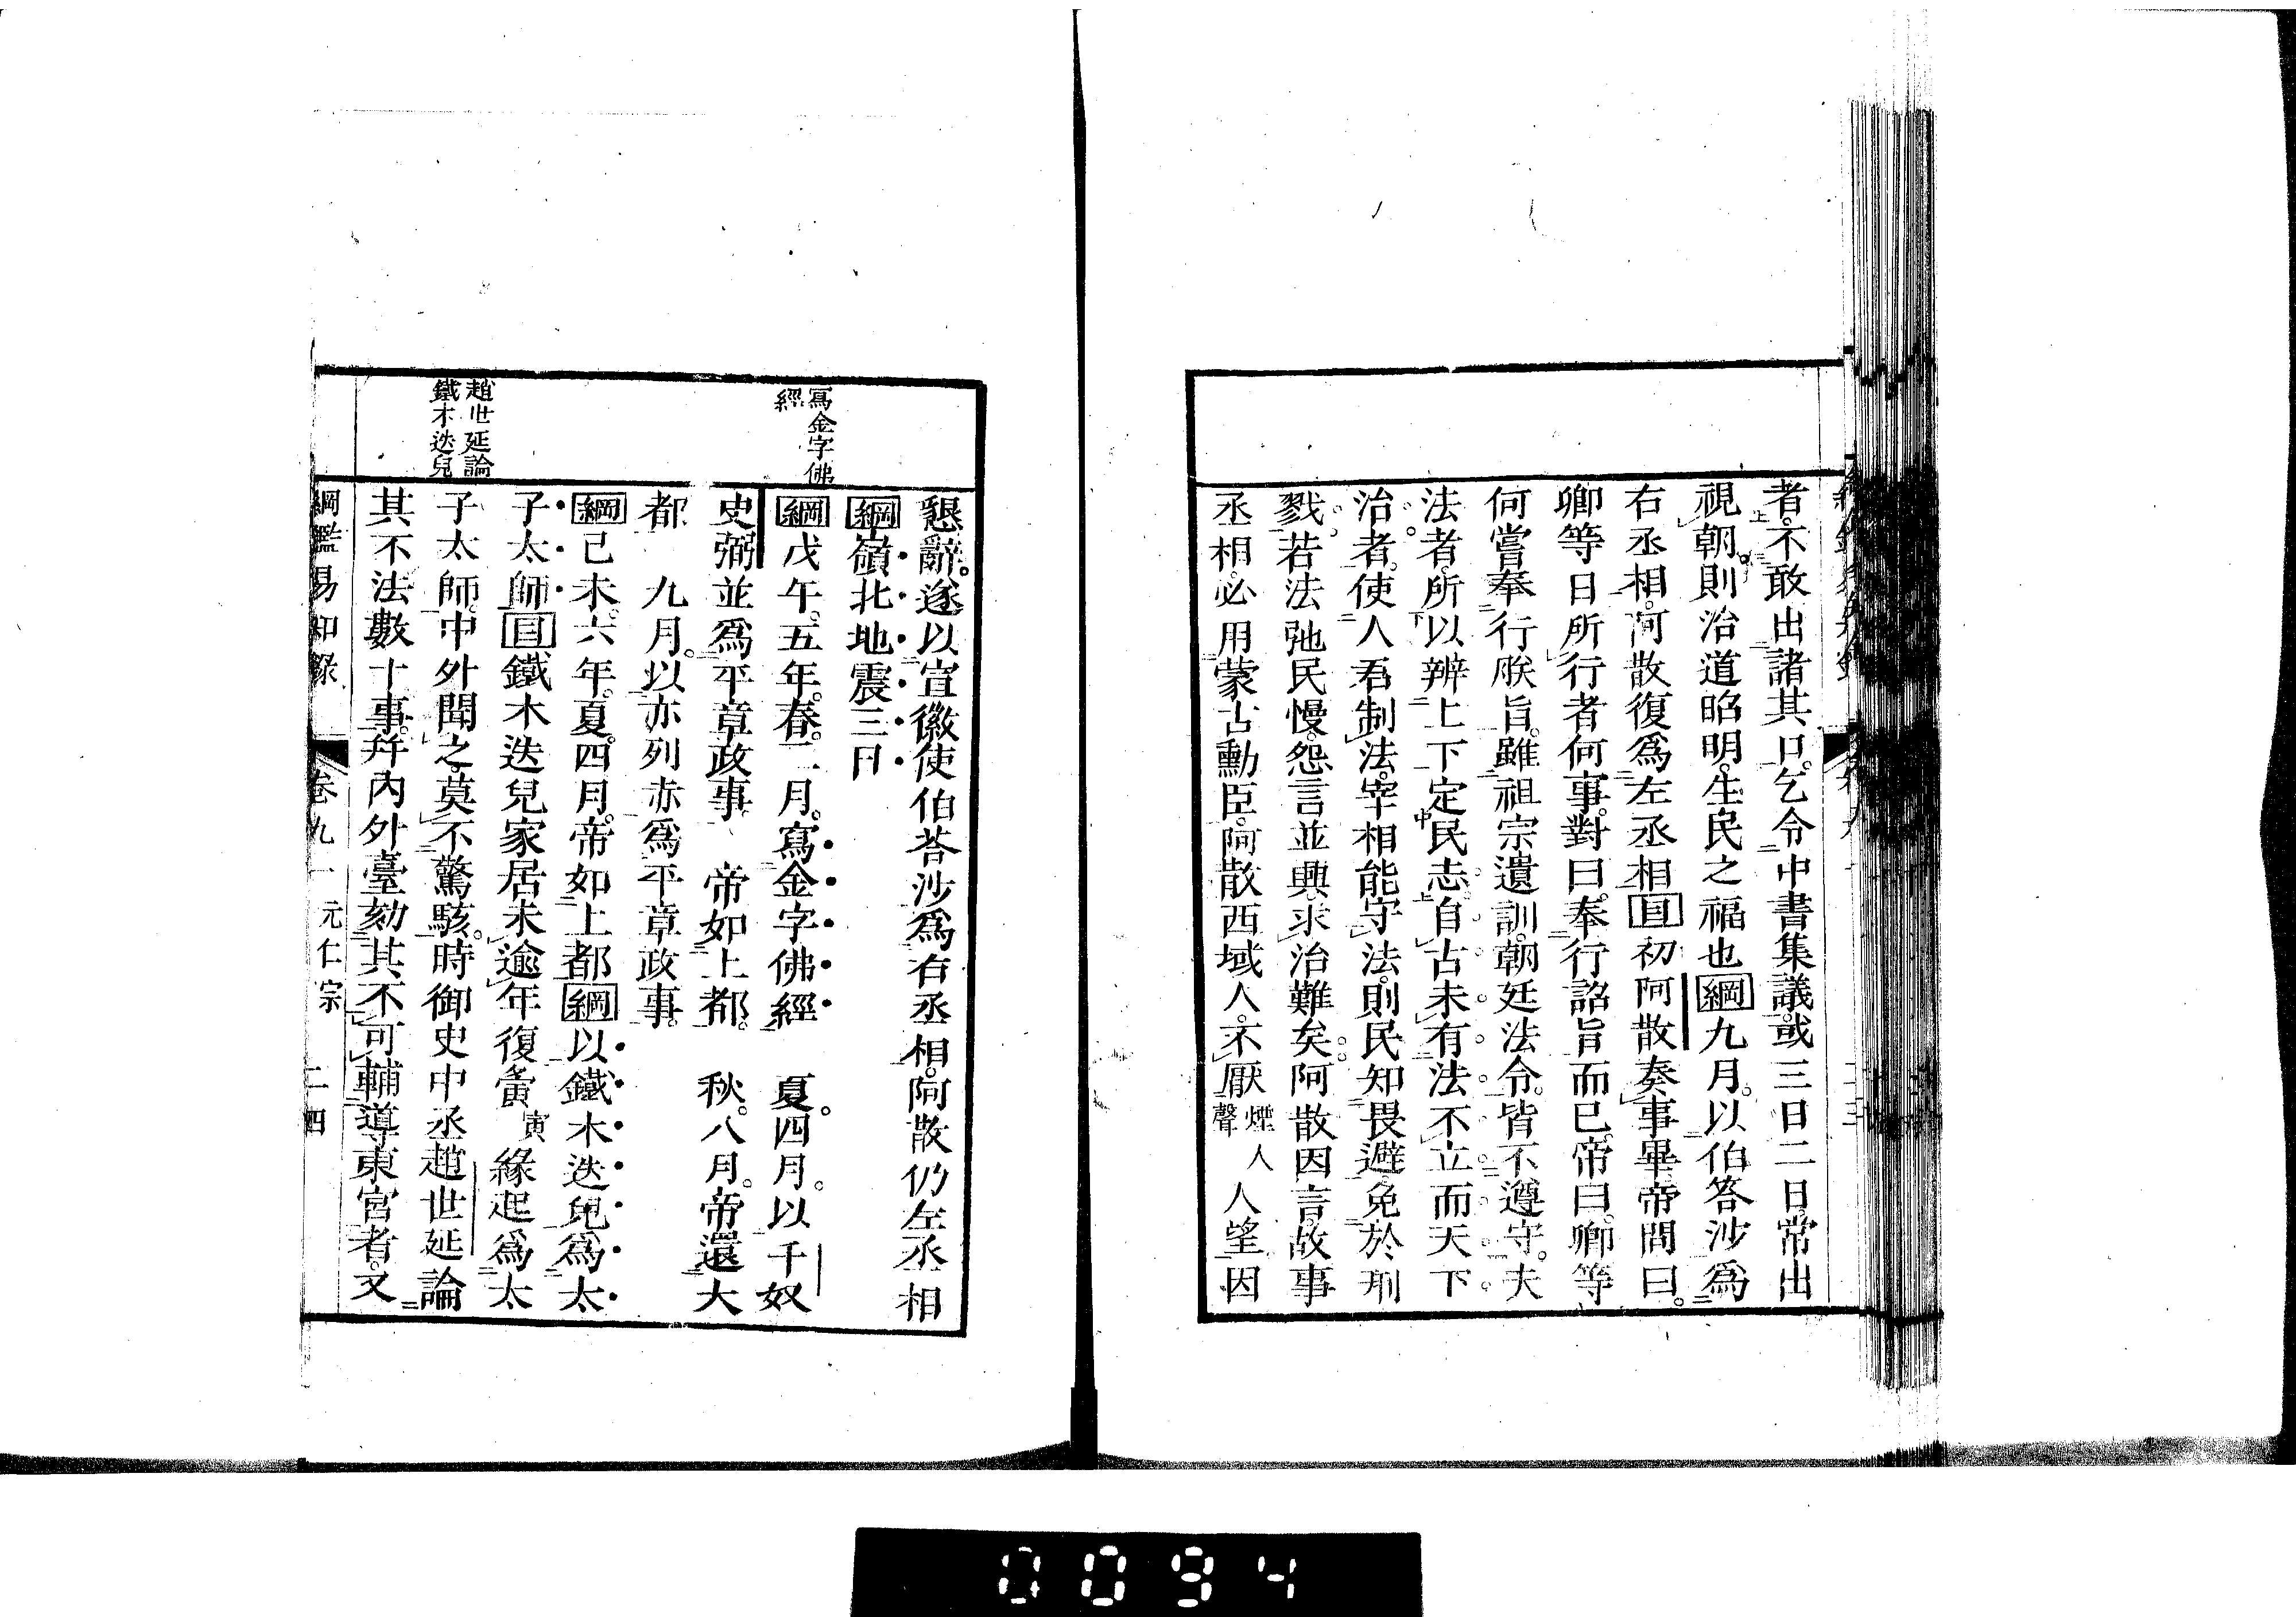 者。不敢出諸其口。乞令中書集議。或三日二日。常出
視朝。則治道昭明。生民之福也綱九月。以伯答沙爲
右丞相。阿散復爲左丞相目初阿散奏事畢。帝問曰。
卿等日所行者何事。對曰。奉行詔旨而已。帝曰。卿等
何嘗奉行朕旨。雖祖宗遺訓。朝廷法令。皆不遵守。夫
法者。所以辨上下。定民志。自古未有法不立。而天下
治者。使人君制法。宰相能守法。則民知畏避。免於刑
戮。若法弛民慢。怨言並興。求治難矣。阿散因言。故事
丞相。必用蒙古勳臣。阿散西域人。不厭煙聲人人望。因
懇辭。遂以宣徽使伯荅沙爲右丞相。阿散仍左丞相
綱嶺北地震三日
寫金字佛
經
綱戊午。五年。春。二月。寫金字佛經 夏。四月。以千奴
史弼並爲平章政事。 帝如上都。 秋。八月。帝還大
都 九月。以亦列赤爲平章政事。
綱己未。六年。夏。四月。帝如上都綱以鐵木迭兒爲太
子太師目鐵木迭兒家居未逾年。復夤寅緣起爲太
趙世延論
鐵木迭兒
子太師。中外聞之。莫不驚駭。時御史中丞趙世延論
其不法數十事。幷內外臺劾其不可輔導東宮者。又
綱鑑易知錄 卷九一 元仁宗 二四